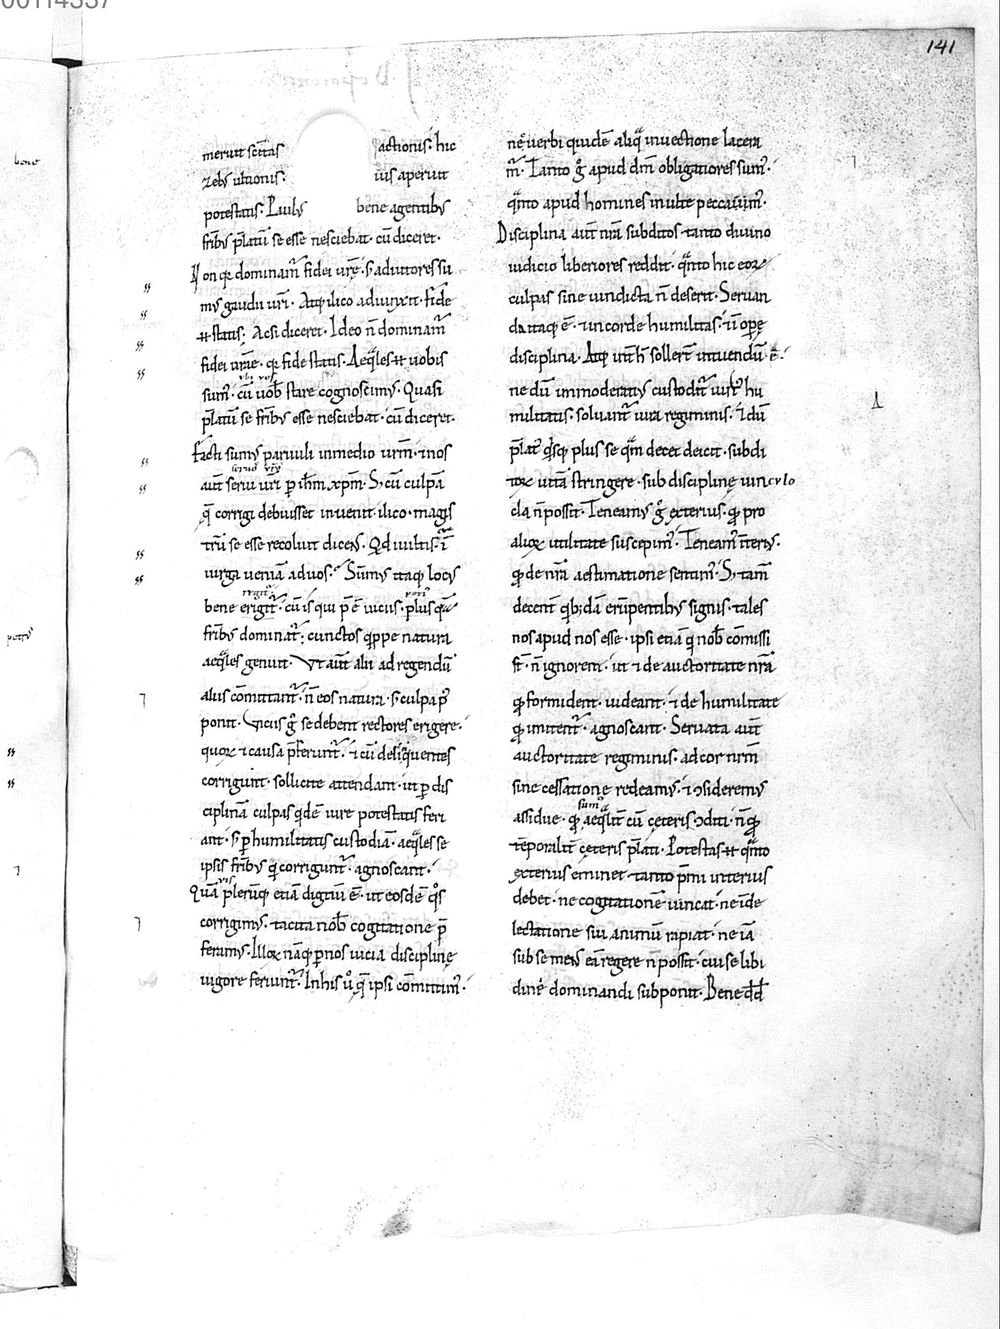 141
meruit sc̄itas actionis. hic
zelus ultionis. ius aperuit
potestatis. Paulus bene agentibus
frībus p̄latū se esse nesciebat. cū diceret.
Non q̄r dominam̄ fidei urę. s; adiutores su
mus gaudii uri. Atq; ilico adiunxit. fide
enī statis. Acsi diceret. Ideo ñ dominam̄
fidei urāe. q̄r fide statis. Aeq̄les enī uobis
sum̄. cū uob̄ stare cognoscimus. Quasi
p̄latū se frībus esse nesciebat. cū diceret.
facti sumus paruuli in medio urm̄. & nos
aut̄ serui uri p ih̄m xp̄m. S; cū culpā
q̄ corrigi debuisset inuenit. ilico magis
trū se esse recoluit dicens. Qd̄ uultis. in
uirga ueniā ad uos. Sūmus itaq; locus
bene erigit̄. cū is qui p̄ē uiciis. plus quā
frībus dominat̄. cunctos q̄ppe natura
aeq̄les genuit. Vt aut̄ alii ad regendū
aliis cōmittant̄. ñ eos natura. s; culpa p̄
ponit. Viciis g̊ se debent rectores erigere.
quoꝝ & causa p̄ferunt̄. & cū delinquentes
corrigunt. sollicite attendant. ut p̱ dis
ciplinā culpas q̄dē iure potestatis feri
ant. s; p̱ humilitatis custodiā. aeq̄les se
ipsis frībus q̄ corrigunt̄. agnoscant.
Quāuis plerūq; etiā dignū ē. ut eosdē q̄s
corrigimus. tacita nob̄ cogitatione p̄
feramus. Illoꝝ nāq; p̱ nos uicia disciplinę
uigore feriunt̄. In his ů q̄ ipsi cōmittim̄.
ne uerbi quidē aliq̄ inuectione lacera
m̄. Tanto g̊ apud dm̄ obligatiores sum̄.
q̄nto apud homines inulte peccauim̄.
Disciplina aut̄ nrā subditos. tanto diuino
iudicio liberiores reddit. q̄nto hic eoꝝ
culpas sine uindicta ñ deserit. Seruan
da itaq; ē. & in corde humilitas. & in opę
disciplina. Atq; int̄ h̄ sollert̄ intuendū ē.
ne dū immoderatius custodit̄ uirtus hu
militatis. soluant̄ iura regiminis. & dū
p̄lat̄ q̄sq; plus se q̄m decet deicit. subdi
toꝝ uitā stringere. sub disciplinę uinculo
ñ possit. Teneamus g̊ exterius. q̄ pro
alioꝝ utilitate suscepim̄. Teneam̄ interius.
q̄ de nrā aestimatione sentim̄. S; tam̄
decent̄ quib;dā erūpentibus signis. tales
nos apud nos esse. ipsi etiā q̄ nob̄ cōmissi
st̄. ñ ignorent. ut & de auctoritate nrā
q̄ formident. uideant. & de humilitate
q̄ imitent̄. agnoscant. Seruata aut̄
auctoritate regiminis. ad cor nrm̄
sine cessatione redeamus. & ꝯsideremus
assidue. q̄ aeq̄lit̄ cū cęteris ꝯditi. ñ q̄
tēporalit̄ cęteris p̄lati. Potestas enī q̄nto
exterius eminet. tanto p̄mi interius
debet. ne cogitationē uincat. ne in de
lectatione sui animū rapiat. ne iā
sub se mens eā regere ñ possit. cui se libi
dine dominandi subponit. Bene dd̄